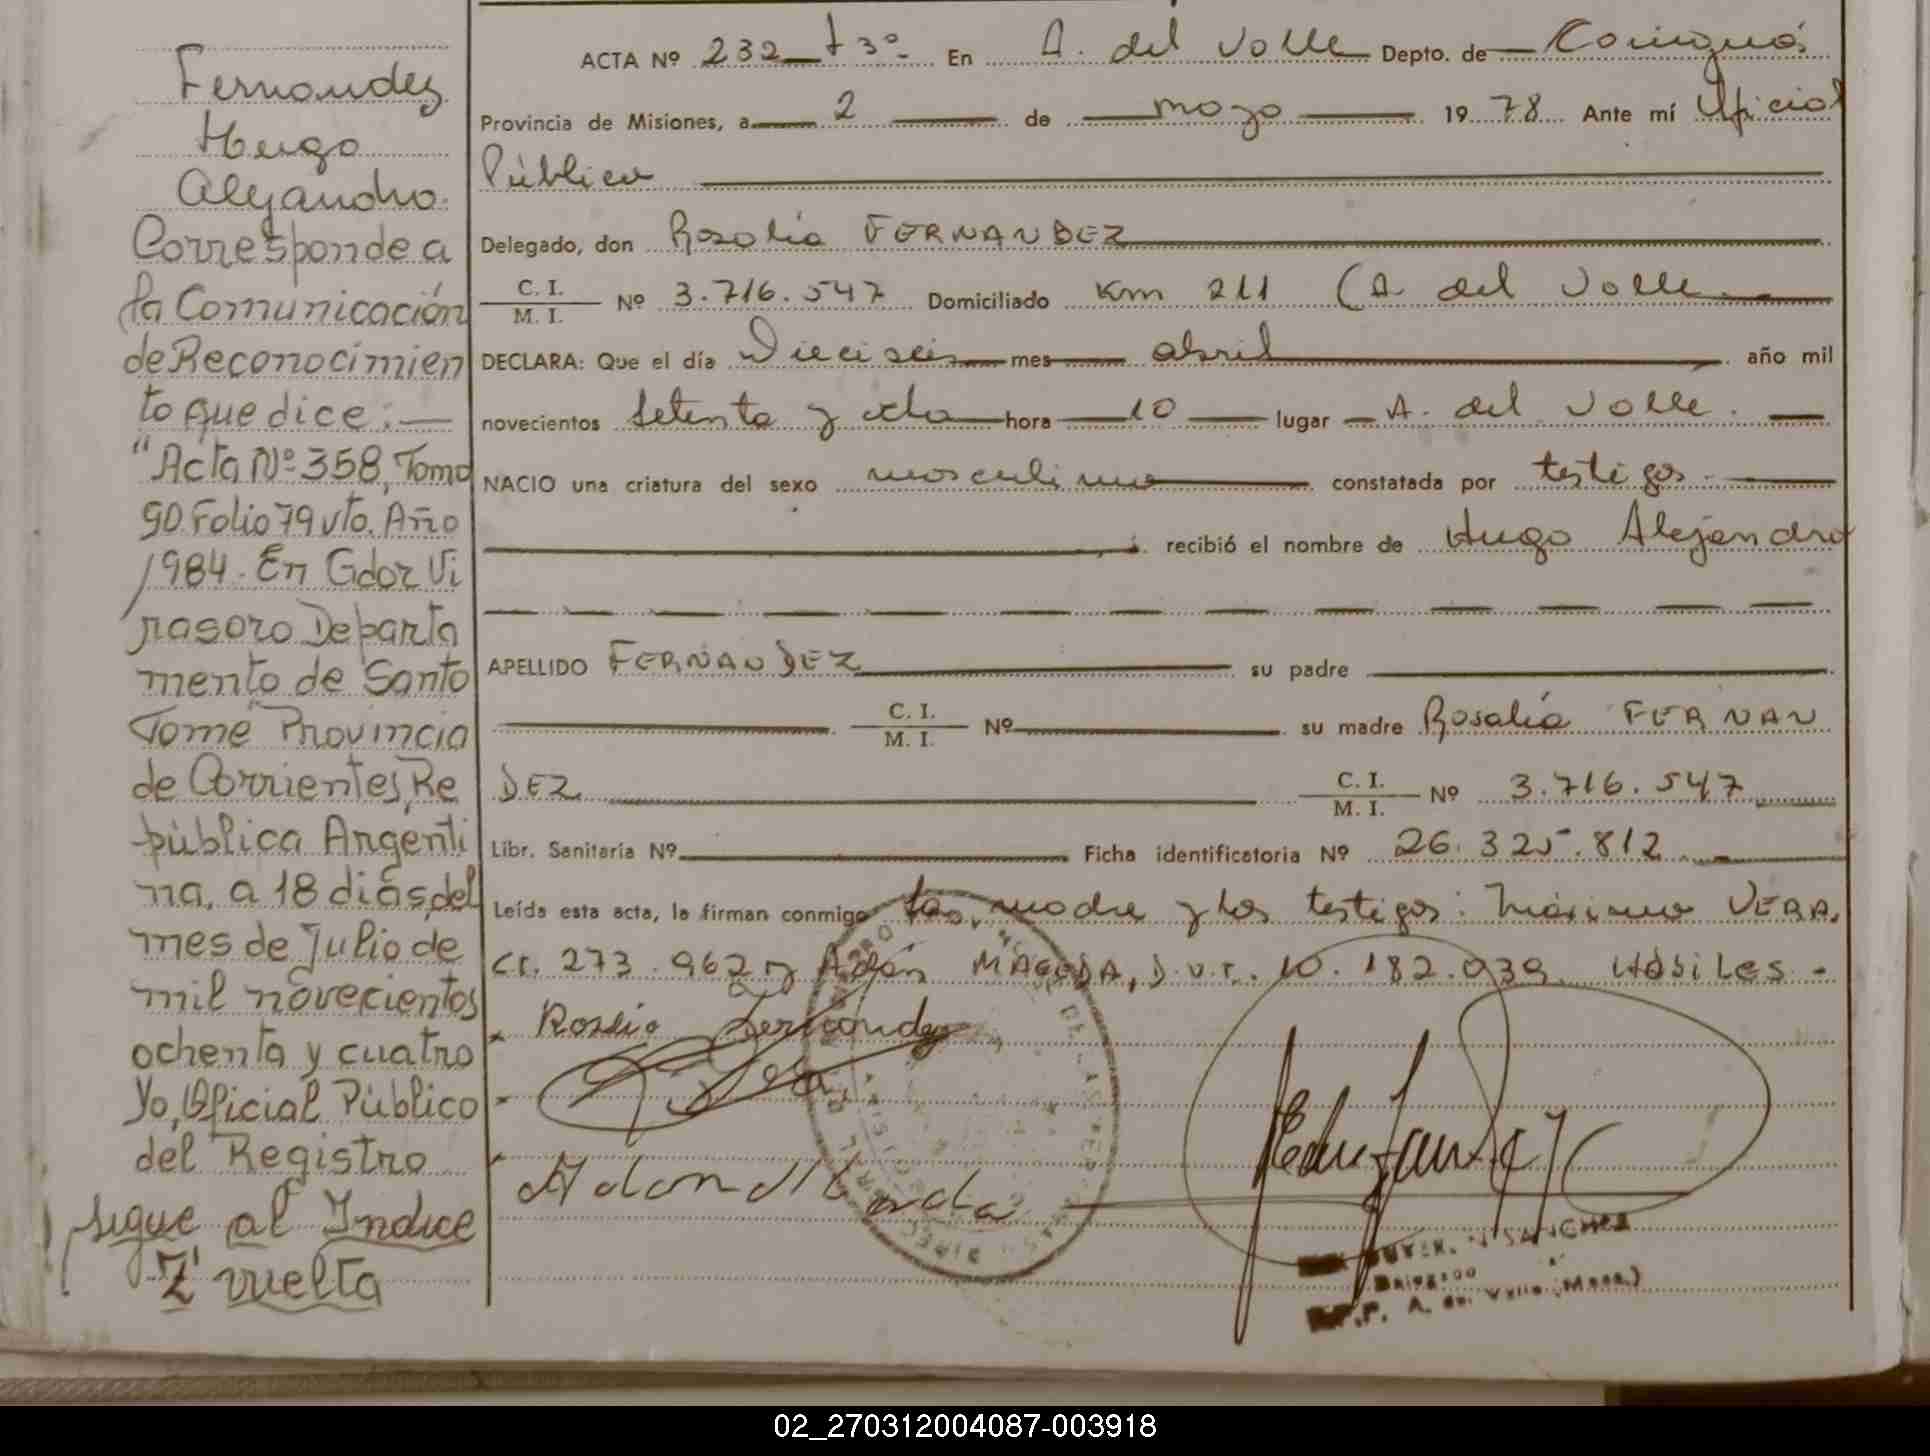 Fernandez
Hugo
Alejandro.
Corresponde a
la Comunicación
de Reconocimien
to que dice: —
"Acta Nº 358, Tomo
90. Folio 79 vto. Año
1984. En Gdor Vi
rasoro Departa
mento de Santo
Tomé Provincia
de Corrientes, Re
pública Argenti
na, a 18 días del
mes de Julio de
mil novecientos
ochenta y cuatro
Yo, Oficial Público
del Registro
sigue al Indice
Z' vuelta
ACTA Nº 232 — t 3º- En A. del Valle Depto. de — Cainguás
Provincia de Misiones, a 2 de mayo 1978 Ante mí Oficial
Público
Delegado, don Rosalía FERNANDEZ
C. I.
M. I. Nº 3.716.547 Domiciliado Km 211 (A. del Valle
DECLARA: Que el día Dieciseis mes abril año mil
novecientos setenta y ocho hora 10 lugar A. del Valle.
NACIO una criatura del sexo masculino constatada por testigos
recibió el nombre de Hugo Alejandro
APELLIDO FERNANDEZ su padre
C. I.
M. I. Nº su madre Rosalía FERNAN
DEZ C. I.
M. I. Nº 3.716.547
Libr. Sanitaria Nº Ficha identificatoria Nº 26.325.812
Leída esta acta, la firman conmigo la madre y los testigos: Máximo VERA,
CI. 273.962 y Adán MACEDA, D.U.I. 10.182.039 Hábiles -
Rosalia Fernandez
Vera
SANCHEZ
Delegado
A. del Valle (Mnes.)
02_270312004087-003918